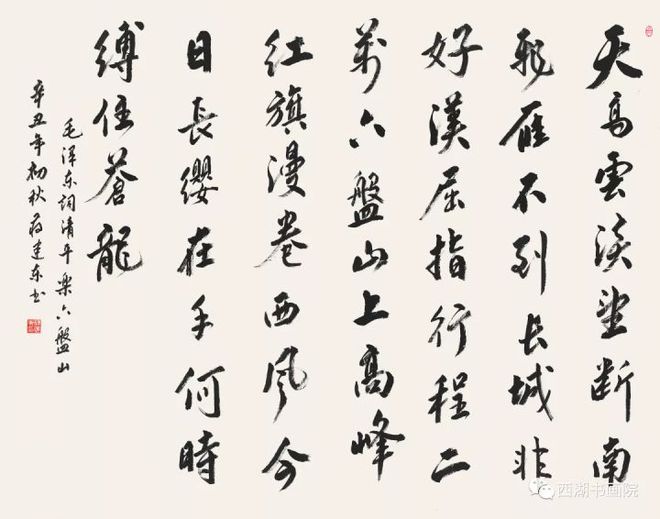 天高雲淡望斷南
飛雁不到长城非
好漢屈指行程二
萬六盤山上高峰
红旗漫卷西风今
日長纓在手何時
縛住蒼龍
毛泽东詞清平樂六盤山
辛丑年初秋蒋建东书
西湖书画院